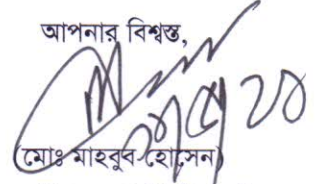 আপনার বিশ্বস্ত,
(মোঃ মাহবুব হোসেন)